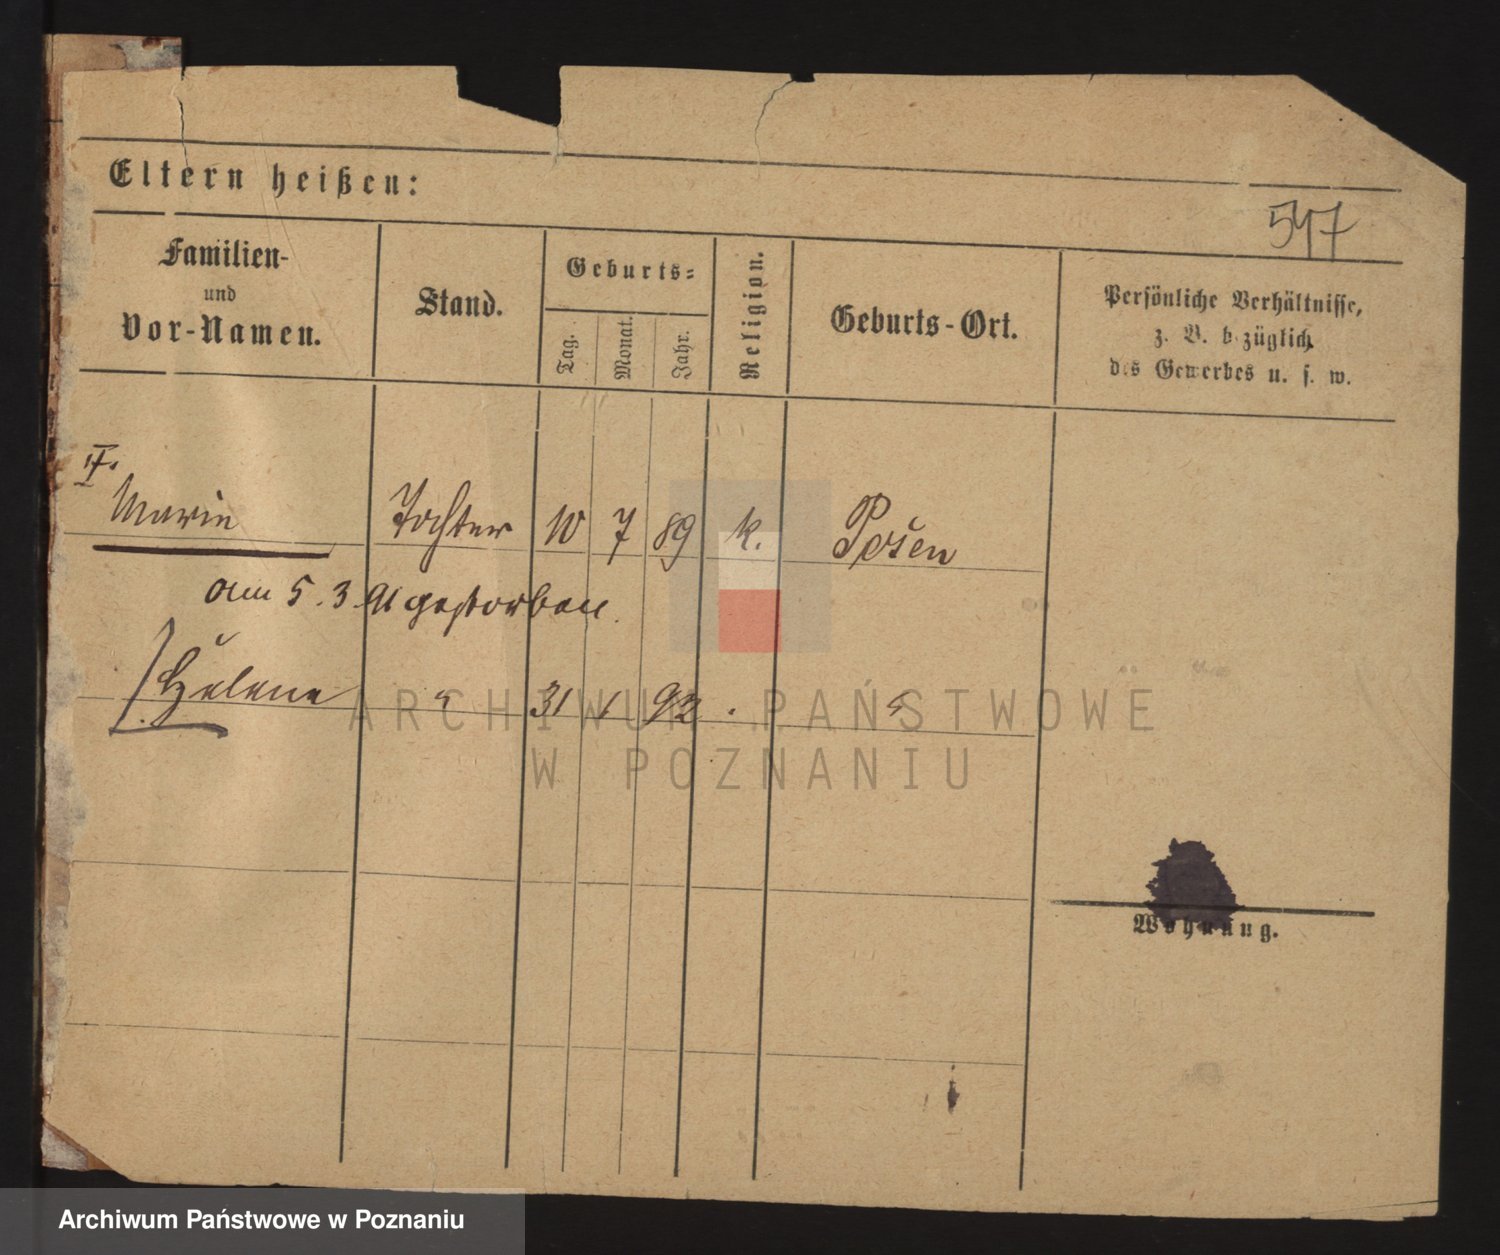 Eltern heißen:
547
Familien-
und
Vor-Namen.
Stand.
Geburts-
Tag.
Monat.
Jahr.
Religion.
Geburts-Ort.
Persönliche Verhältnisse,
z. B. bezüglich
des Gewerbes u. s. w.
Marie Tochter 10 7 89 k. Posen
am 5. 3. 91 gestorben.
Helene " 31 1 92 . "
Wohnung.
ARCHIWUM PAŃSTWOWE
W POZNANIU
Archiwum Państwowe w Poznaniu